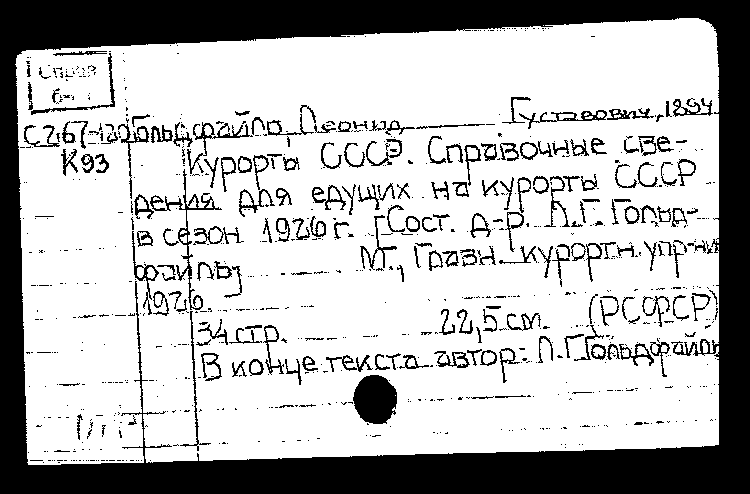 Справ
б-
С2/67-120 Гольдфайль, Леонид Густавович, 1894
К93 Курорты СССР. Справочные све-
дения для едущих на курорты СССР
в сезон 1926 г. [Сост. д-р. Л.Г. Гольд-
файль] М., Главн. курортн. упр-ние
1926.
34 стр. 22,5 см. (РСФСР)
В конце текста автор: Л.Г. Гольдфайль